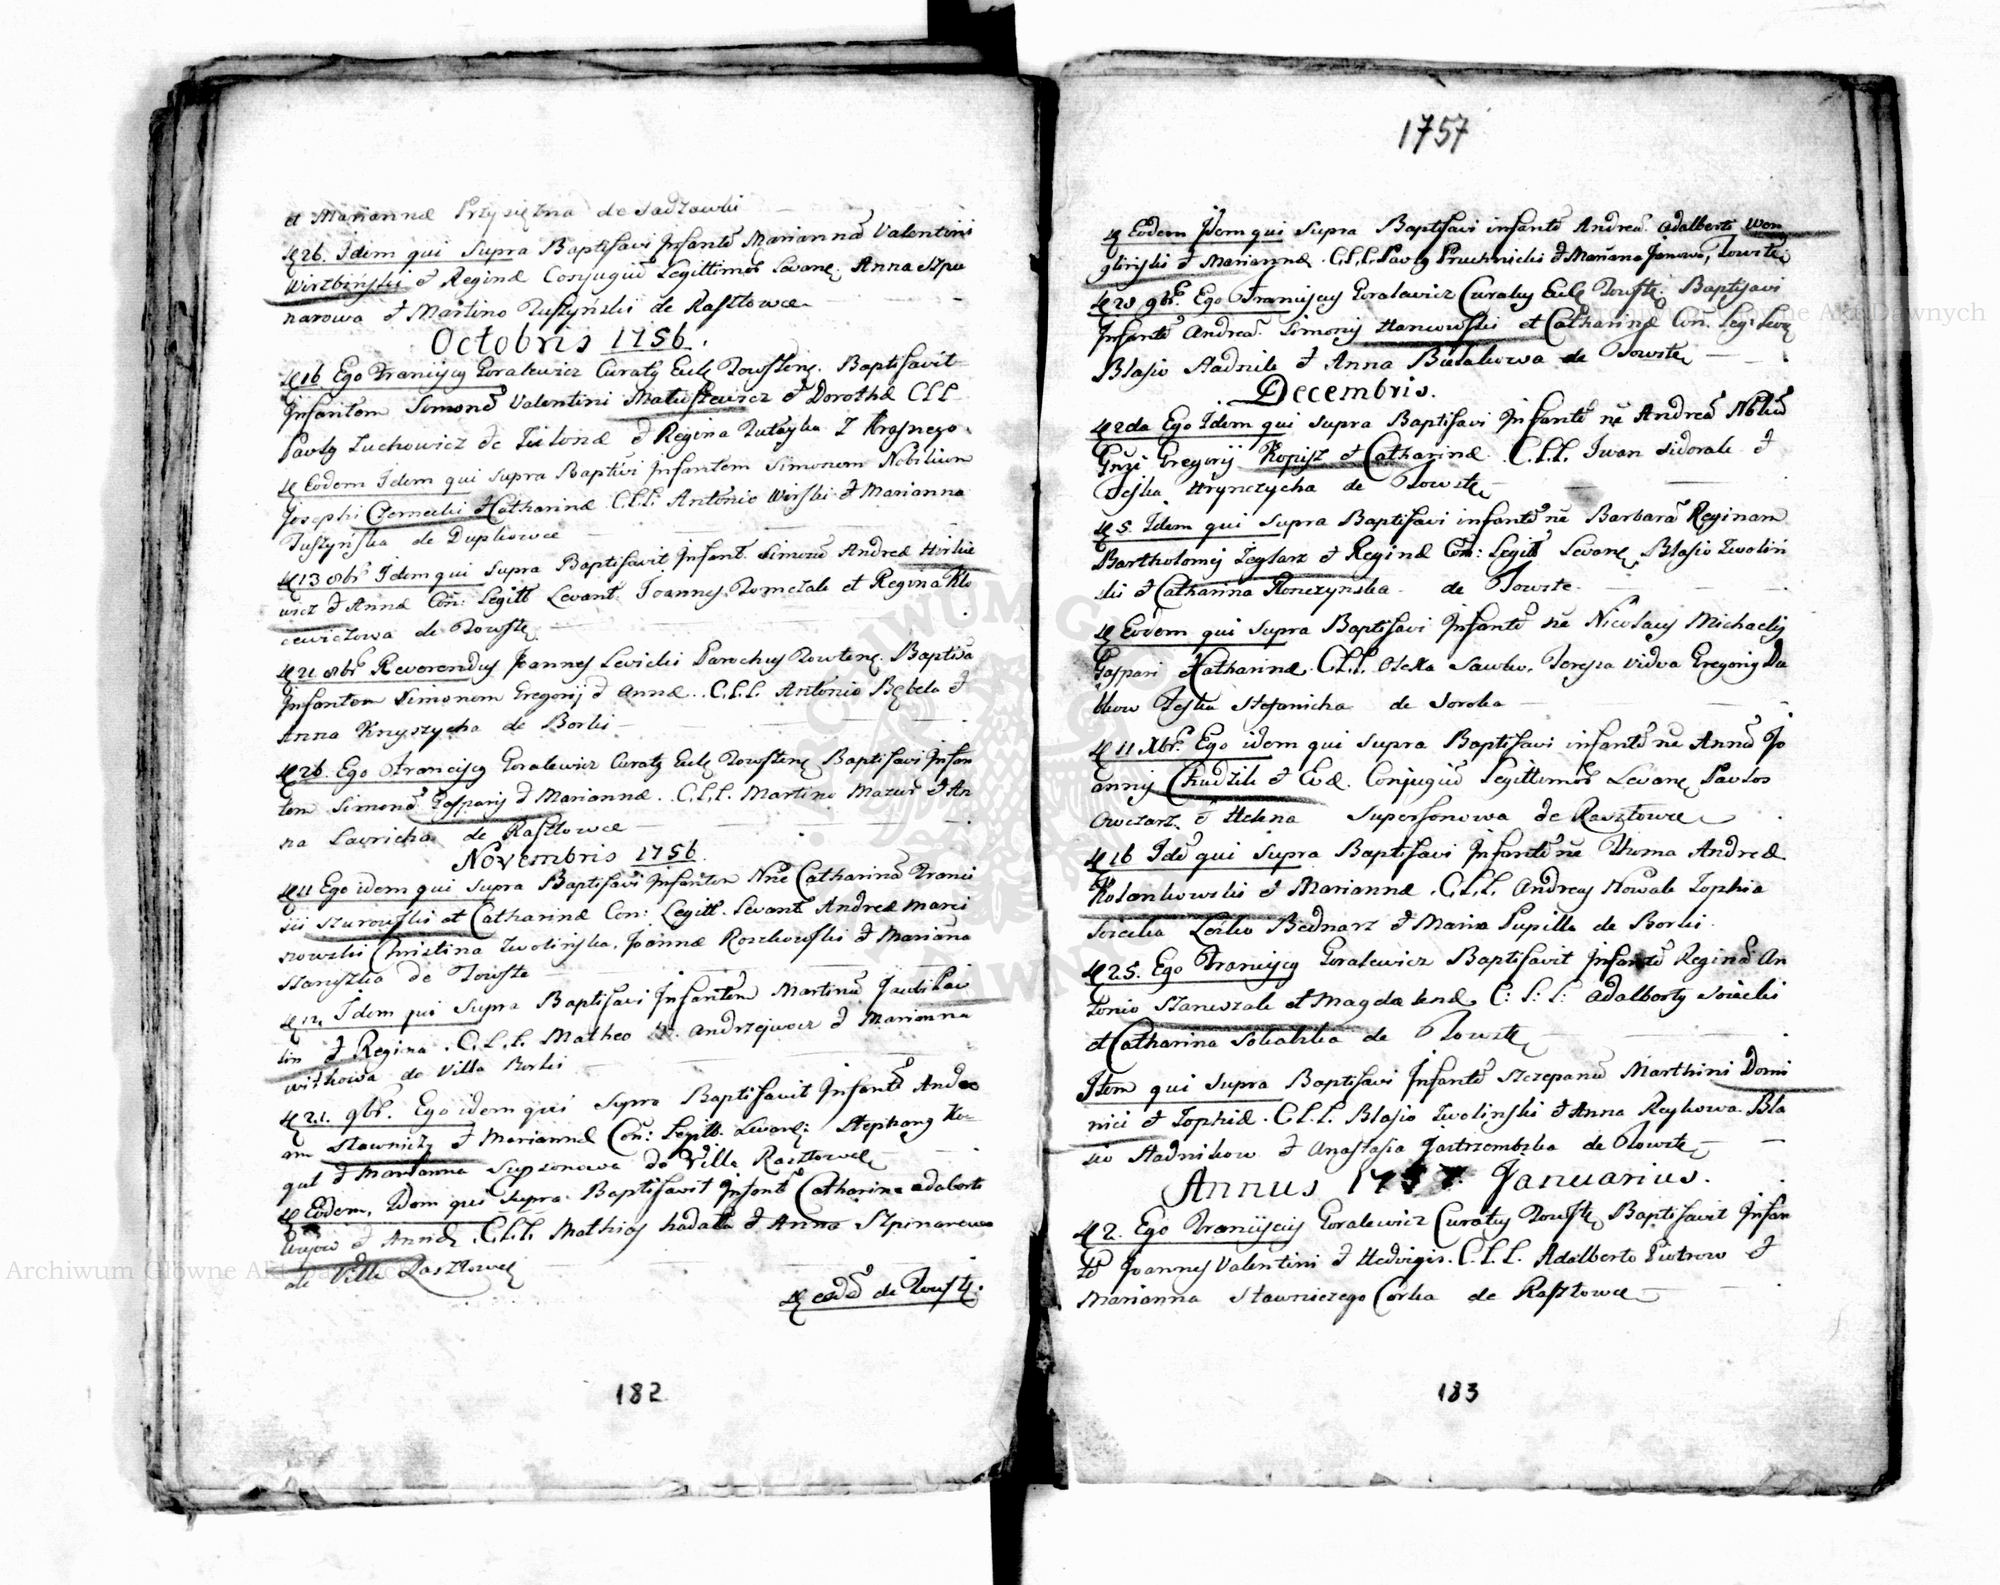 et Mariannæ Przysięzna de Sadzawki
26. Idem qui Supra Baptisavi Infantē Mariannā Valentini
Wirzbiński et Reginæ Conjugū Legittimor Levane. Anna Szpu
narowa et Martino Tuszyński de Rasztowce
Octobris 1756.
16 Ego Franciscq Goralewicz Curatq Eccle Towsten. Baptisavit
Infantem Simonē Valentini Matusiewicz et Dorothæ C.L.L.
Pavlq Zuchowicz de et Regina Z Krasnego.
Eodem Idem qui supra Baptivi Infantem Simonem Nobilium
Josephi Czernecki et Catharinæ C.L.L. Antonio Wirski et Marianna
Tuszyńska de Dupkowce
13 8br Idem qui Supra Baptisavit Infant. Simonē Andreæ Hirkie
wicz et Annæ Con: Legitt Levant. Joannes et Regina Klo
cewiczowa de Towste
21 8br Reverendus Joannes Levicki Parochus Towtene. Baptisa
Infantem Simonem Gregorij et Annæ. C.L.L. Antonio Bębela et
Anna Knyszycha de Borki
26. Ego Franciscq Goralewicz Curatq Eccle Towstene Baptisavi Infan
tem Simonē Gasparij et Mariannæ. C.L.L. Martino Mazur et An
na Lavricha de Rasztowce
Novembris 1756.
11 Ego idem qui supra Baptisavi Infantem Nne Catharinā Franci
sci Szurowski et Catharinæ Con: Legitt. Levant Andreæ Marci
nowski Christina Zwolińska, Joannæ Roszkowski et Mariana
Staniszka de Towste
12. Idem qui Supra Baptisavi Infantem Martinū Jacubi Paw
lin et Regina. C.L.L. Matheo Andrzejwicz et Marianna
witkowa de Villa Borki
21. 9br. Ego idem qui Supra Baptisavit Infantē Andre
am Stawniczy et Mariannæ Con: Legitt. Levane: Stephanq Ko
gut et Marianna Supsonowa de Villa Rasztowce
Eodem, Idem qui Supra Baptisavit Infantē Catharina adalberti
et Annæ. C.L.L. Mathias hadala et Anna Szpinarowa
de Villa Rasztowce
eodē de Towste.
182
1757
Eodem Idem qui Supra Baptisavi infantē Andrea. Adalberti Wen
gliński et Mariannæ. C.L.L. Pavlq Pruchnicki et Mariana Janowa, Towste
20 9br. Ego Franciscus Goralewicz Curatus Eccle Towste. Baptisavi
Infantē Andrea. Simonis Hanowski et Catharinæ Con. Leg: Leva
Blasio Stadnik et Anna Busakowa de Towste
Decembris.
2da Ego Idem qui Supra Baptisavi Infantē ne Andreā Nbliū
Gregorij Kopisz et Catharinæ. C.L.L. Iwan Sidorak et
Teska Hrynczycha de Towste
5. Idem qui supra Baptisavi infantē ne Barbarā Reginam
Bartholomei Zeglarz et Reginæ Con: Legitt Levane, Blasio Zwolin
ski et Catharina Konczynska de Towste
Eodem qui Supra Baptisavi Infantē ne Nicolaus Michaelis
Gaspari et Catharinæ. C.L.L. Oleksa Sawkw, Teresia vidva Gregorig Du
Teska Stefanicha de Soroka
11 Xbr. Ego idem qui supra Baptisavi infantē ne Annā Jo
annis Chudzik et Evæ. Conjugiū Legittimor Levane Pavlos
Owczarz et Helena Supersonowa de Rasztowce
16 Idē qui Supra Baptisavi Infantē ne Thoma Andreæ
Kolankowski et Mariannæ. C.L.L. Andreas Nowak Zophia
Bednarz et Maria Pupilla de Borki.
25. Ego Franciscq Goralewicz Baptisavit Infantē Reginā An
tonio Staniszak et Magdalenæ. C: L: L: Adalbertq
et Catharina Sokalska de Towste
Item qui supra Baptisavi Infantē Szczepanū Marthini Domi
nici et Zophiæ. C.L.L. Blasio Zwolinski et Anna Reykowa. Bla
sio Stadnikow et Anastasia Jastrzembska de Towste
Annus 1757. Januarius.
2. Ego Franciscus Goralewicz Curatus Towste Baptisavit Infan
tē Joannes Valentini et Hedvigis. C.L.L. Adalberto Piotrow et
Marianna Stawniczego Corka de Rasztowce
183
Archiwum Główne Akt Dawnych
Archiwum Główne Akt Dawnych